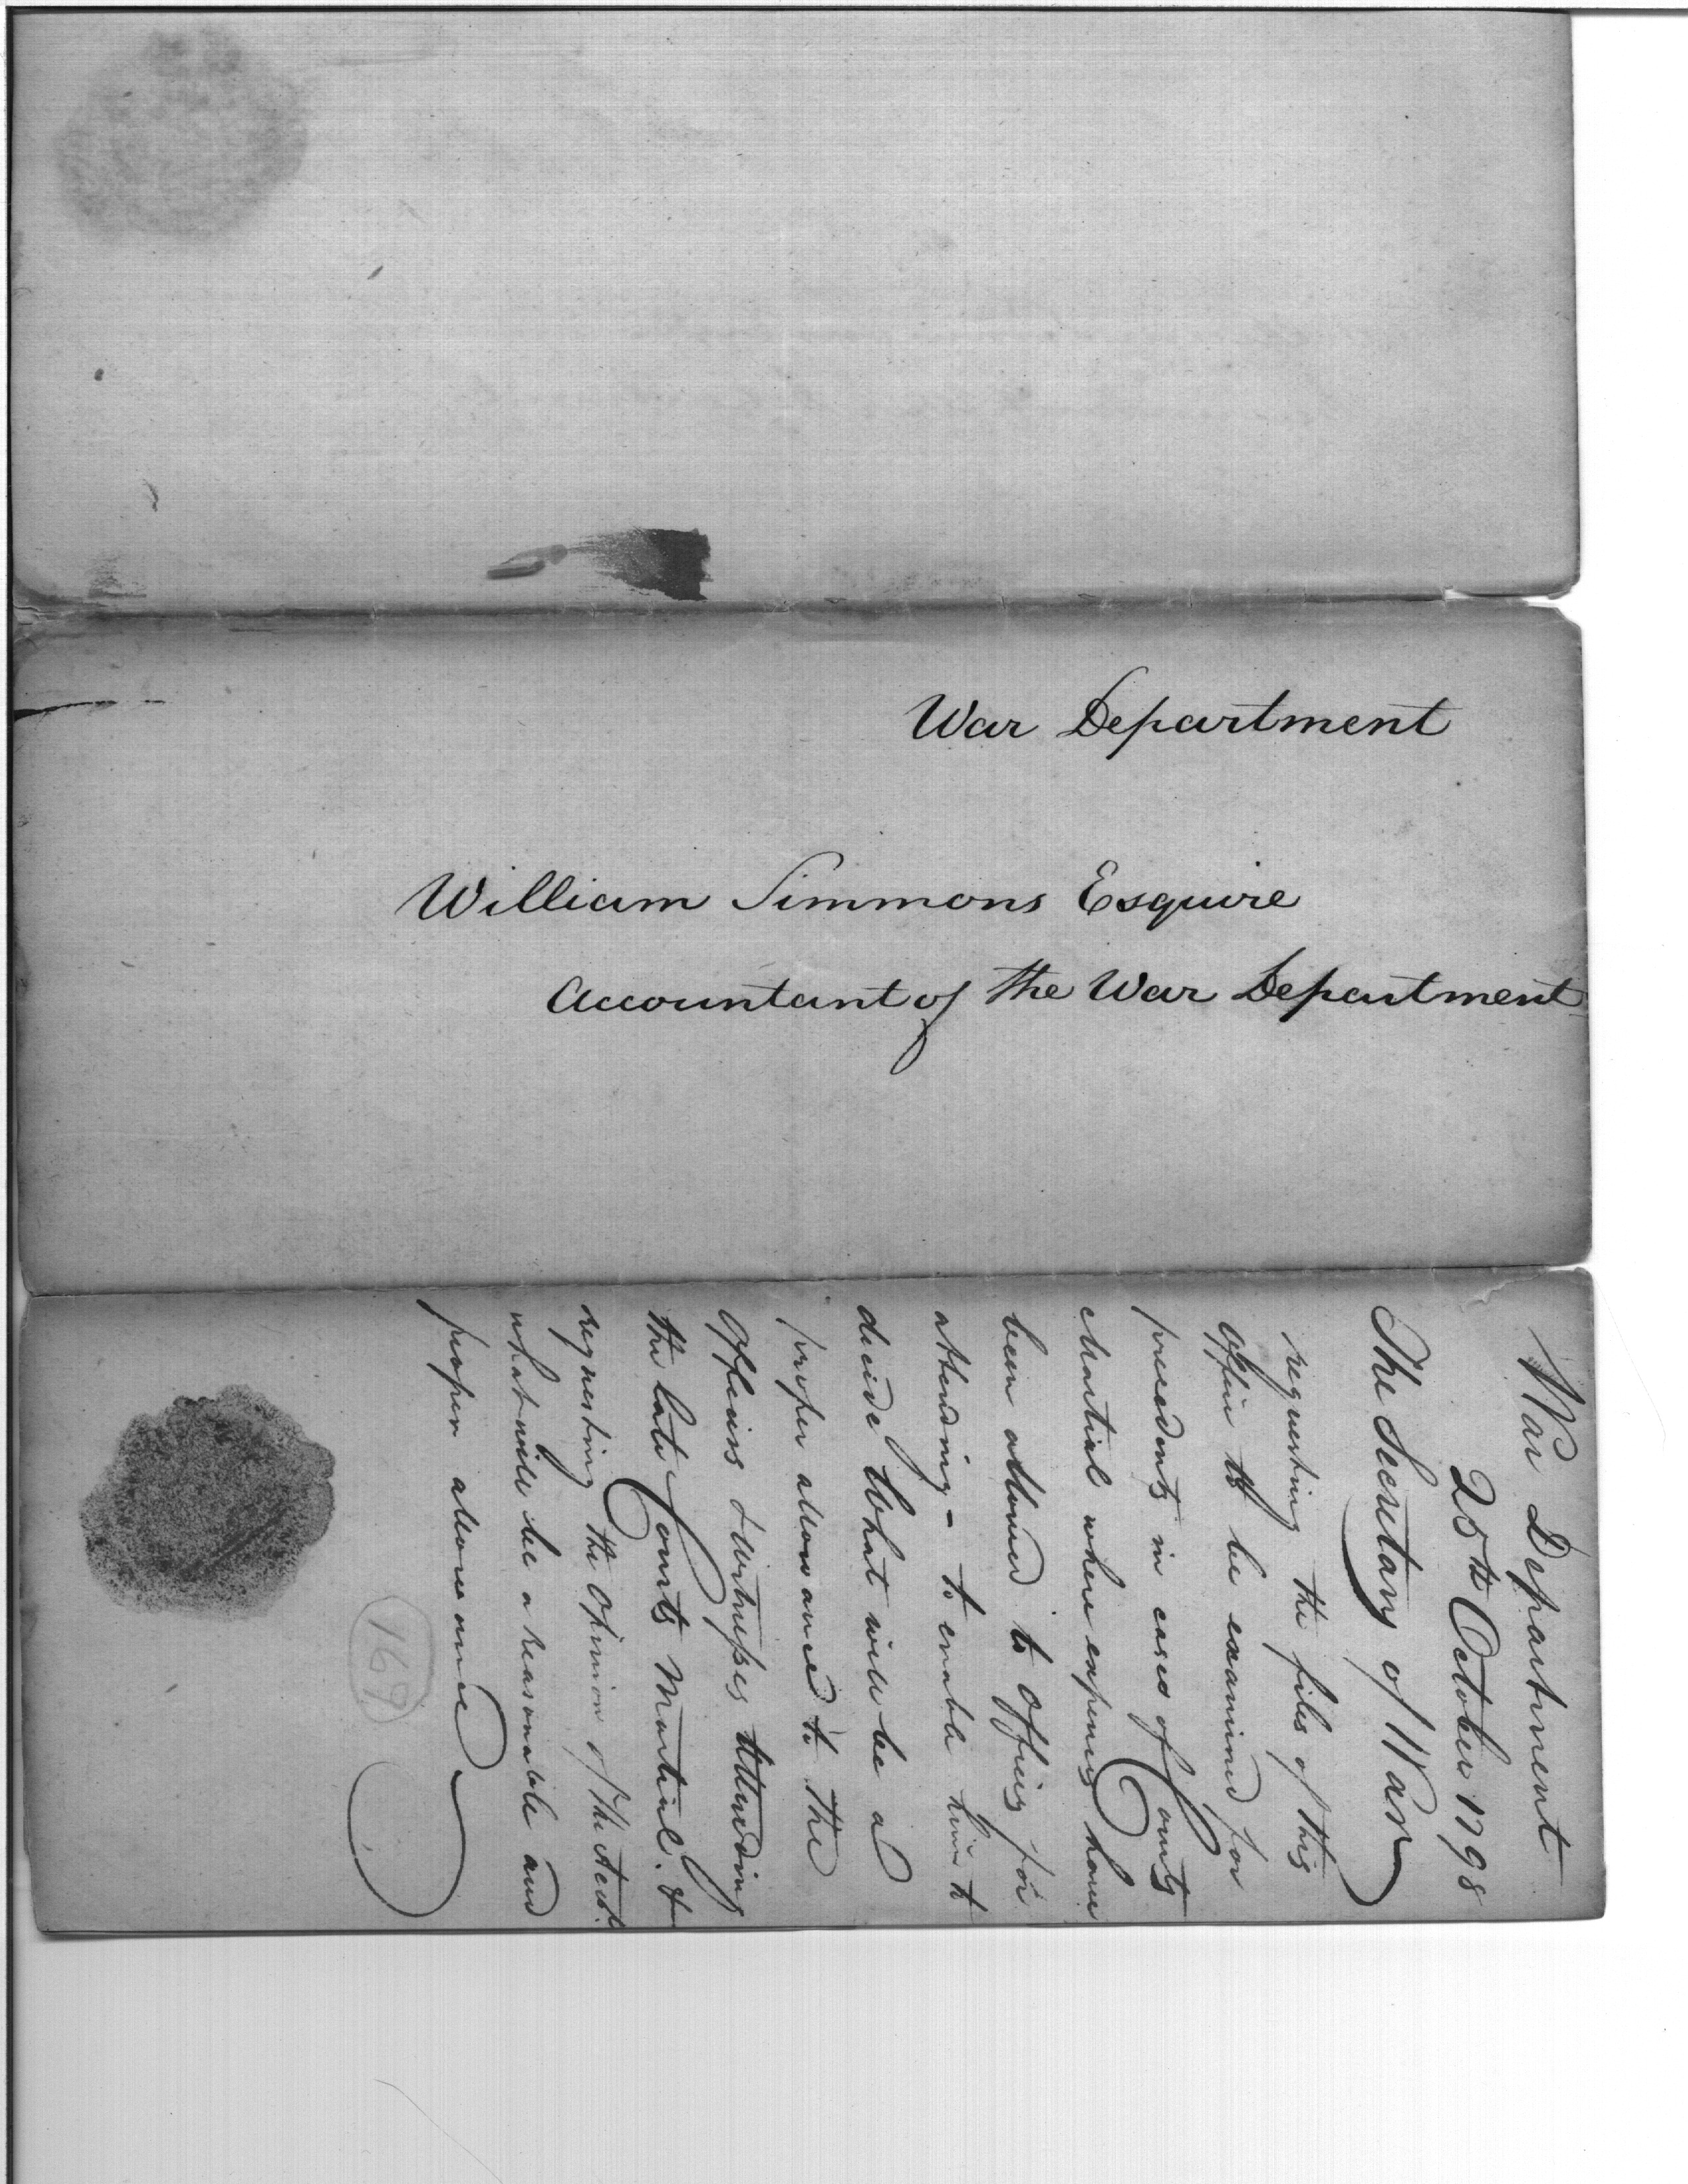 War Department
William Simmons Esquire
Accountant of the War Department
War Department
25th October 1798
The Secretary of War
requesting the files of this
Office to be examined for
precedents in cases of Courts
Martial where expenses have
been allowed to Officers for
attending - to enable him to
decide What will be a
proper allowance to the
Officers & Witnesses attending
the late Courts Martial. &
requesting the Opinion of the Acct.
what will be a reasonable and
proper allowance
169